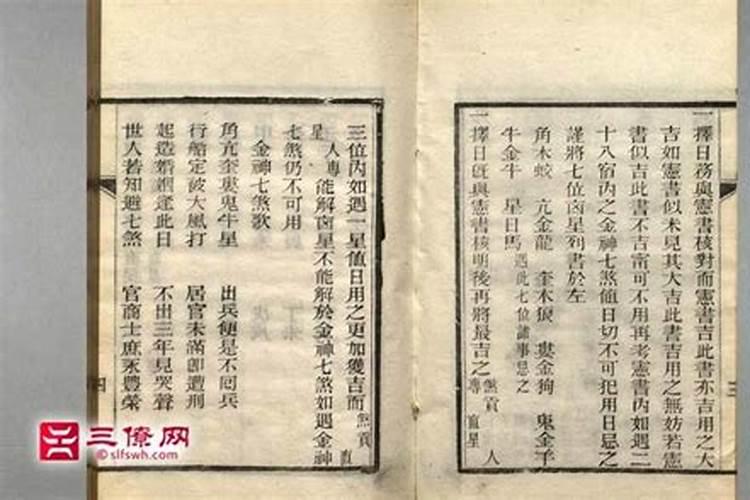 一擇日務與憲書核對而憲書吉此書亦吉用之大
吉如憲書似未見其大吉此書吉用之無妨若憲
書似吉此書不吉甯可不用再考憲書內如遇二
十八宿內之金神七煞值日切不可犯用日忌之
謹將七位凶星列書於左
角木蛟 亢金龍 奎木狼 婁金狗 鬼金羊
牛金牛 星日馬 遇此七位諸事忌之
一擇日既與憲書核明後再將最吉之 煞貢 直星 人專
三位內如遇一星值日用之更加獲吉而 煞貢 直
星 人專 能解凶星不能解於金神七煞如遇金神
七煞仍不可用
金神七煞歌
角亢奎婁鬼牛星 出兵便是不囘兵
行船定被大風打 居官未滿即遭刑
起造婚姻逢此日 不出三年見哭聲
世人若知避七煞 官商士庶永豐榮
四
三僚网
©slfswh.com